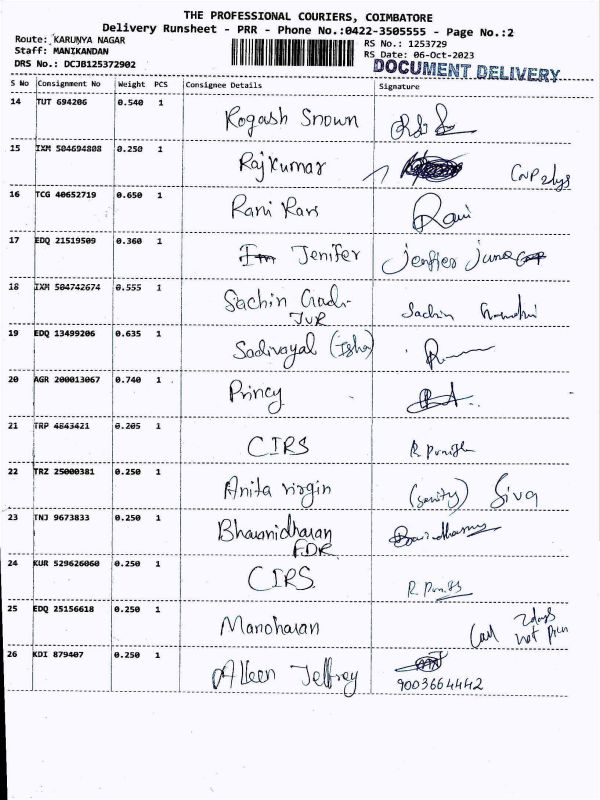 THE PROFESSIONAL COURIERS, COIMBATORE
Delivery Runsheet - PRR - Phone No.:0422-3505555 - Page No.:2
Route: KARUNYA NAGAR
Staff: MANIKANDAN
DRS No.: DCJB125372902
RS No.: 1253729
RS Date: 06-Oct-2023
DOCUMENT DELIVERY
S No Consignment No Weight PCS Consignee Details Signature
14 TUT 694206 0.540 1 Rogash Snown
15 IXM 504694808 0.250 1 Rajkumar
16 TCG 40652719 0.650 1 Rani Rars Rani
17 EDQ 21519509 0.360 1 Jenifer
18 IXM 504742674 0.555 1 Sachin Gadi- Sachin
JUR
19 EDQ 13499206 0.635 1 Sadivayal (Isha)
20 AGR 200013067 0.740 1 Princy
21 TRP 4843421 0.205 1 CIRS
22 TRZ 25000381 0.250 1 Anita virgin Siva
23 TNJ 9673833 0.250 1 Bhavanidharan
FDR
24 KUR 529626060 0.250 1 CIRS
25 EDQ 25156618 0.250 1 Manoharan
26 KDI 879407 0.250 1 Alleen Jeffrey
9003664442